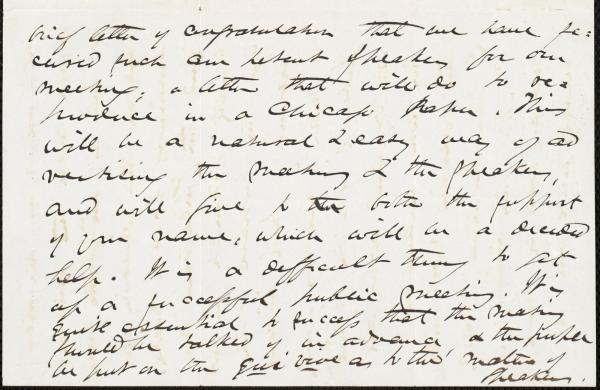 brief letter of congratulation that we have se=
cured such an eminent speaker for our
meeting; a letter that will do to re=
produce in a Chicago paper. This
will be a natural & easy way of ad
vertising the meeting & the speaker,
and will give to the both the support
of your name, which will be a decided
help. It is a difficult thing to get
up a successful public meeting. It is
quite essential to success that the meeting
should be talked of in advance & the public
be put on the qui vive as to the matter of
speakers.